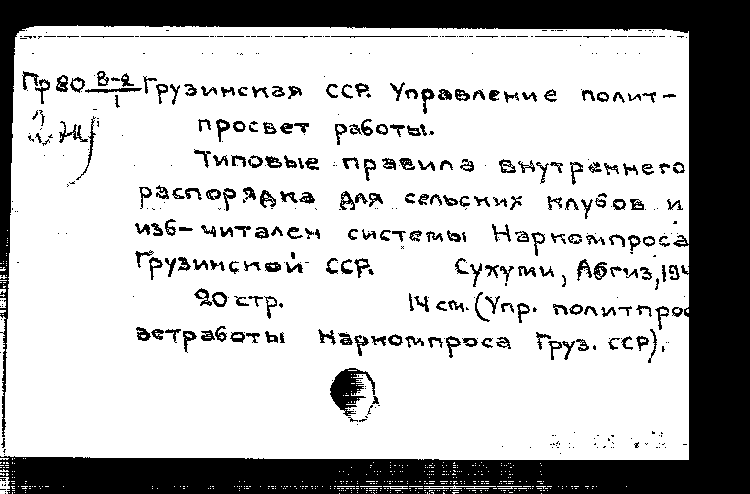 Пр80 В-2/1 Грузинская ССР. Управление полит-
просвет работы.
Типовые правила внутреннего
распорядка для сельских клубов и
изб-читален системы Наркомпроса
Грузинской ССР. Сухуми, Абгиз, 194
20 стр. 14 см. (Упр. политпрос
ветработы Наркомпроса Груз. ССР).